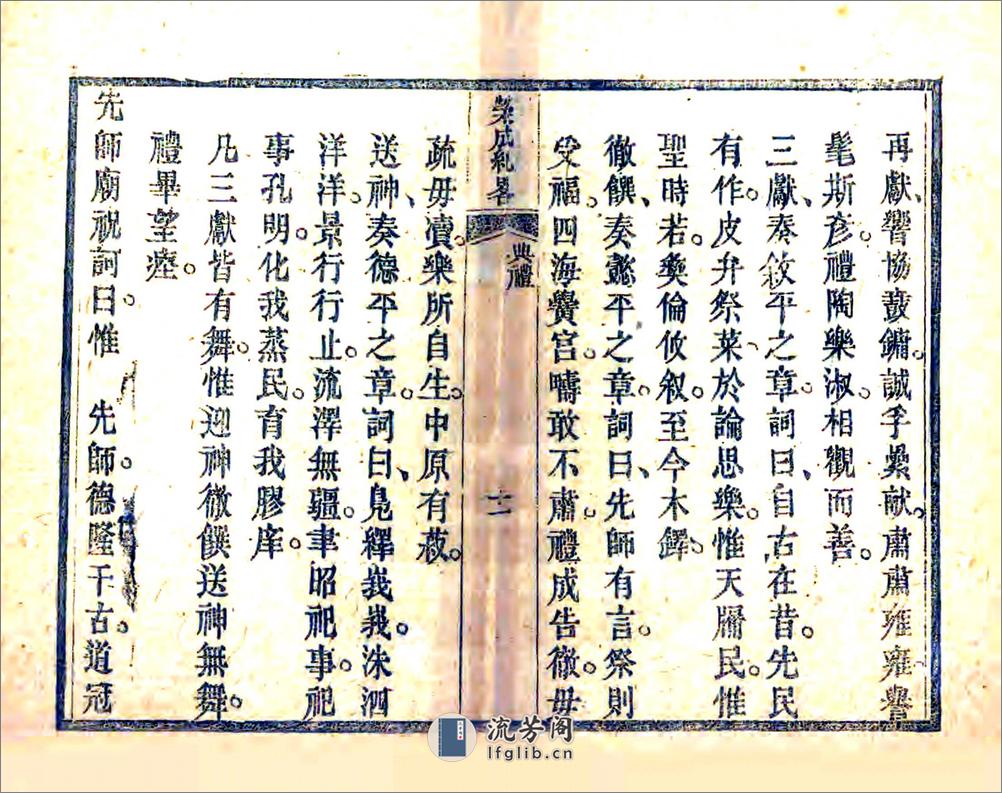 再獻、響協鼖鏞。誠孚罍献。肅肅雍雍。譽
髦斯彦。禮陶樂淑。相觀而善。
三獻、奏敘平之章。詞曰、自古在昔。先民
有作。皮弁祭菜。於論思樂。惟天牖民。惟
聖時若。彝倫攸叙。至今木鐸。
徹饌、奏懿平之章。詞曰、先師有言。祭則
受福。四海黌宫。疇敢不肅。禮成告徹。毋
疏毋凟。樂所自生。中原有菽。
榮成紀畧
典禮
十一
送神、奏德平之章。詞曰、鳧繹峩峩。洙泗
洋洋。景行行止。流澤無疆。聿昭祀事。祀
事孔明。化我蒸民。育我膠庠。
凡三獻皆有舞。惟迎神徹饌送神無舞。
禮畢望瘞。
先師廟祝詞曰。惟　先師。德隆千古。道冠
流芳阁
lfglib.cn